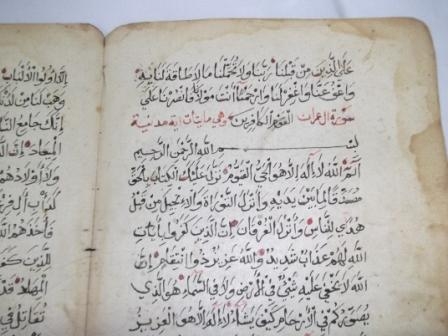 على الذين من قبلنا ربنا ولا تحملنا ما لا طاقة لنا به
واعف عنا واغفر لنا وارحمنا أنت مولانا فانصرنا على
سورة ال عمران القوم الكافرين وهي مايتا اية مدنية
بسم الله الرحمن الرحيم
الم الله لا إله إلا هو الحي القيوم نزل عليك الكتاب بالحق
مصدقا لما بين يديه وأنزل التوراة والإنجيل من قبل
هدى للناس وأنزل الفرقان إن الذين كفروا بآيات
الله لهم عذاب شديد والله عزيز ذو انتقام إن
الله لا يخفى عليه شيء في الأرض ولا في السماء هو الذي
يصوركم في الأرحام كيف يشاء لا إله إلا هو العزيز
إلا أولوا الألباب
وهب لنا من لدنك
إنك جامع الناس
الميعاد إن الذين
ولا أولادهم
كدأب آل فرعون
فأخذهم الله
للذين كفروا
المهاد قد
تقاتل في